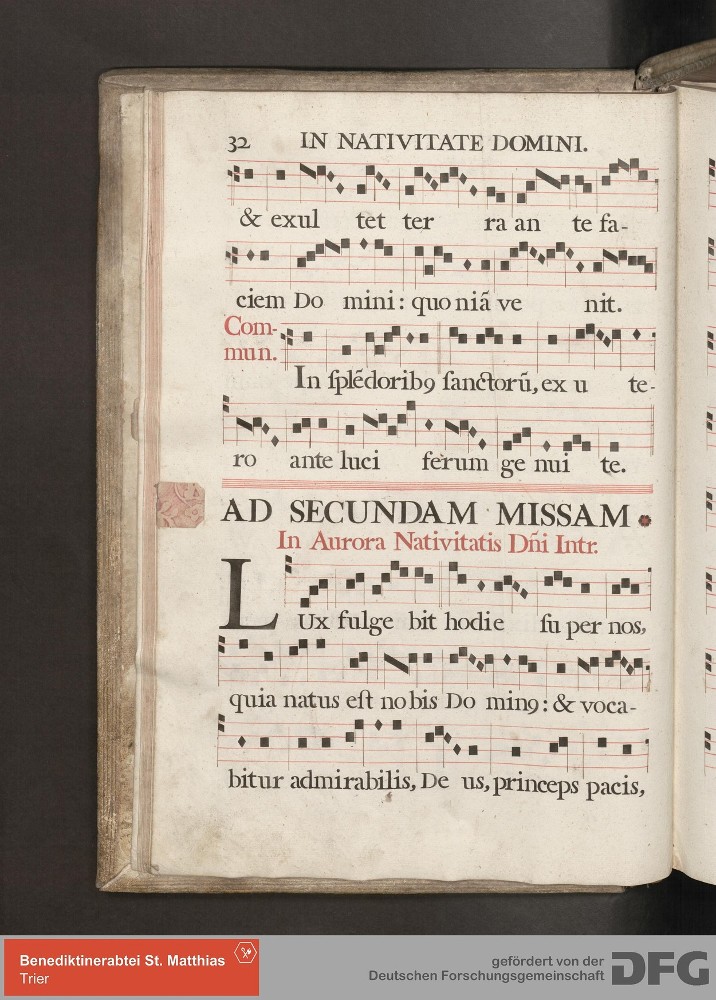 32 IN NATIVITATE DOMINI.
& exul tet ter ra an te fa-
ciem Do mini: quo niã ve nit.
Com-
mun.
In ſplẽdorib9 ſanctorũ, ex u te-
ro ante luci ferum ge nui te.
AD SECUNDAM MISSAM
In Aurora Nativitatis Dñi Intr.
LUx fulge bit hodie ſu per nos,
quia natus eſt no bis Do min9: & voca-
bitur admirabilis, De us, princeps pacis,
Benediktinerabtei St. Matthias
Trier
gefördert von der
Deutschen Forschungsgemeinschaft
DFG